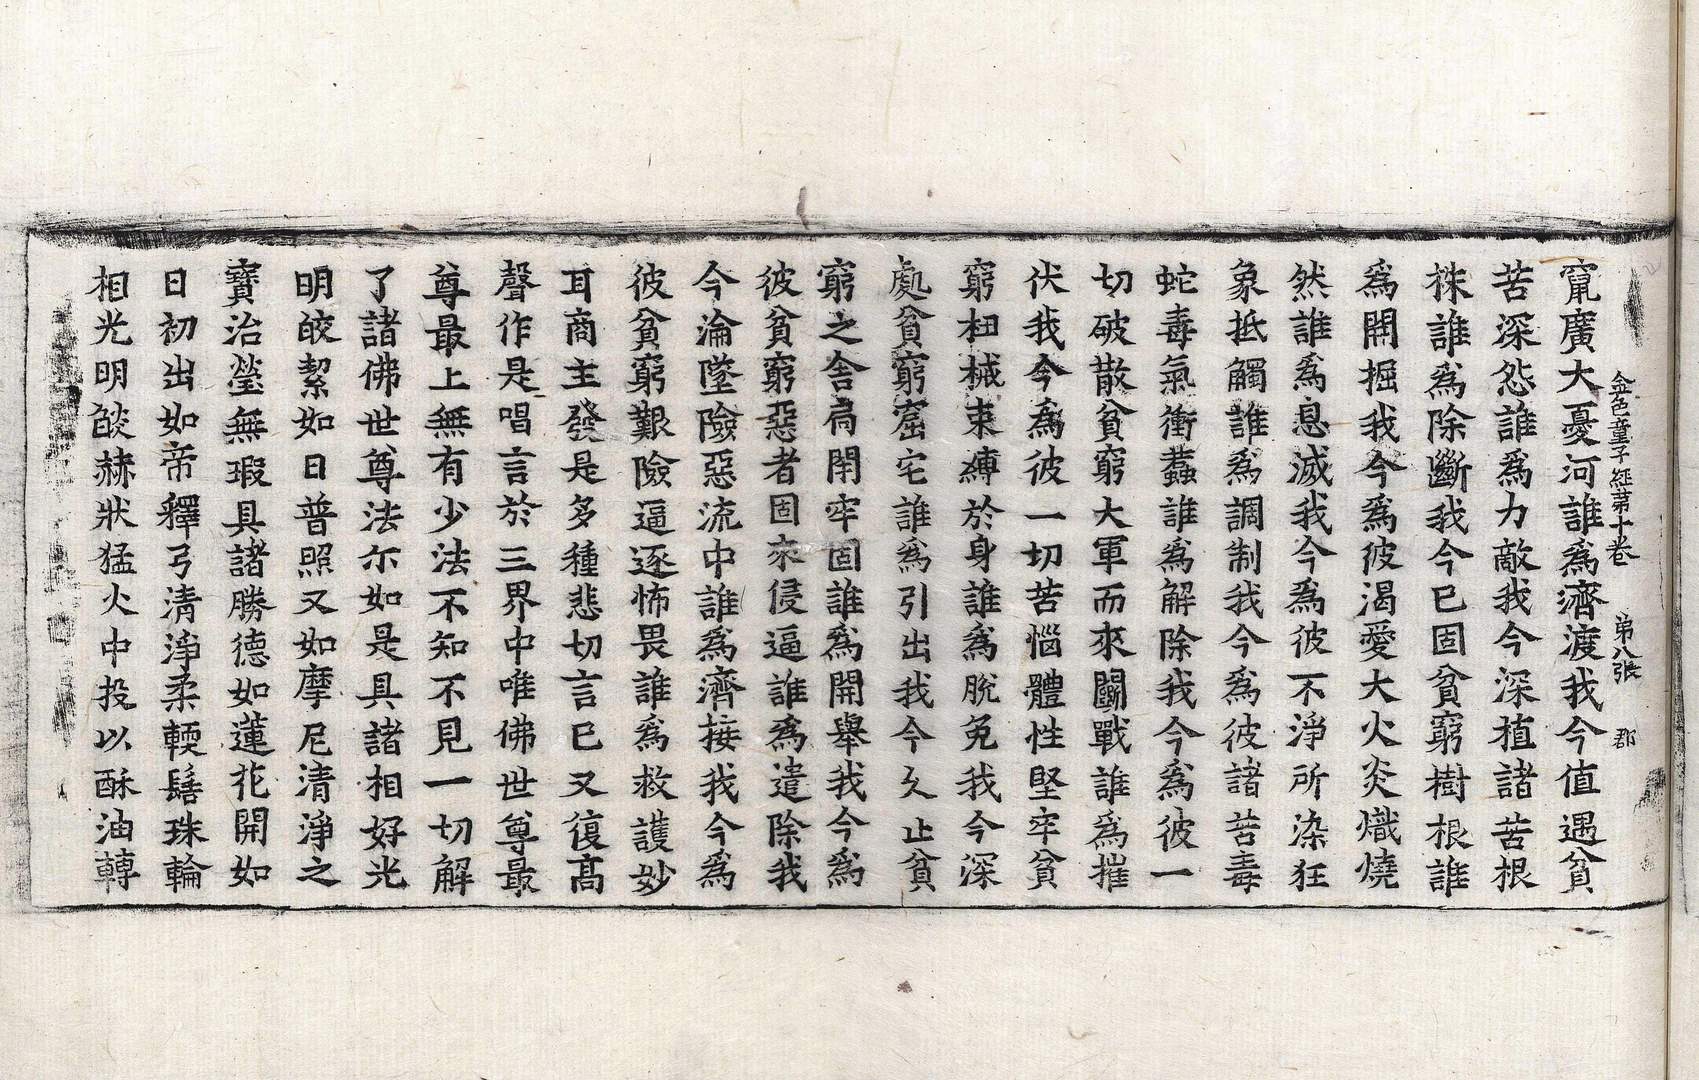 金色童子經第十卷 第八張 郡
窮廣大憂河誰爲濟渡我今值遇貧
苦深怨誰爲力敵我今深植諸苦根
株誰爲除斷我今已固貧窮樹根誰
爲開掘我今爲彼渴愛大火炎熾燒
然誰爲息滅我今爲彼不淨所染狂
象抵觸誰爲調制我今爲彼諸苦毒
蛇毒氣衝蠚誰爲解除我今爲彼一
切破散貧窮大軍而來鬪戰誰爲摧
伏我今爲彼一切苦惱體性堅牢貧
窮杻械束縛於身誰爲脫免我今深
處貧窮窟宅誰爲引出我今久止貧
窮之舍扃閉牢固誰爲開舉我今爲
彼貧窮惡者固來侵逼誰爲遣除我
今淪墜險惡流中誰爲濟接我今爲
彼貧窮艱險逼逐怖畏誰爲救護妙
耳商主發是多種悲切言已又復高
聲作是唱言於三界中唯佛世尊最
尊最上無有少法不知不見一切解
了諸佛世尊法尒如是具諸相好光
明皎潔如日普照又如摩尼清淨之
寶治瑩無瑕具諸勝德如蓮花開如
日初出如帝釋弓清淨柔輭髻珠輪
相光明燄赫狀猛火中投以酥油轉